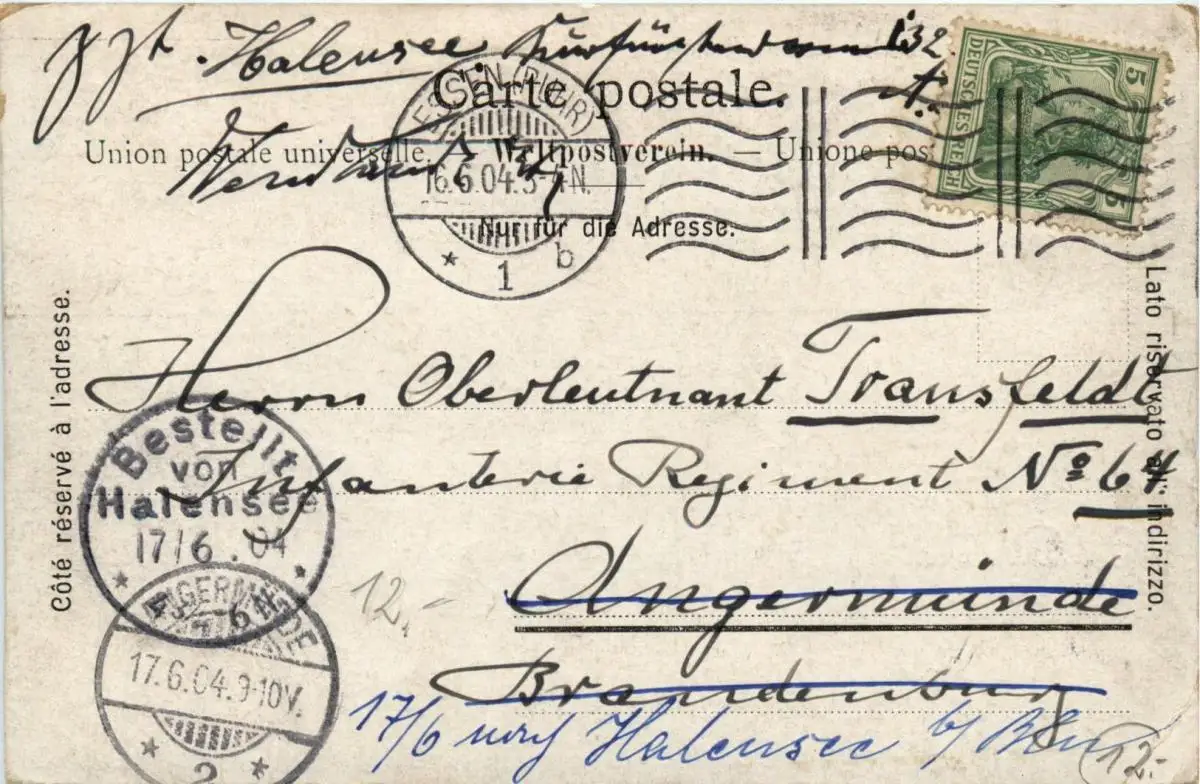 z. Zt. Halensee Kurfürstendamm 132
Carte postale.
Union postale universelle. — Weltpostverein. — Unione pos
Nur für die Adresse.
ESSEN (RUHR)
16.6.04.3-4N.
* 1 b
DEUTSCHES REICH
5 5
Côté réservé à l'adresse.
Lato riservato all' indirizzo.
Herrn Oberleutnant Transfeldt
Infanterie Regiment No 64
Angermünde
Brandenburg
Bestellt
von
Halensee
17/6.04
ANGERMÜNDE
17.6.04.9-10V.
* 2 *
12.-
17/6 nach Halensee b/ Bln
12.-